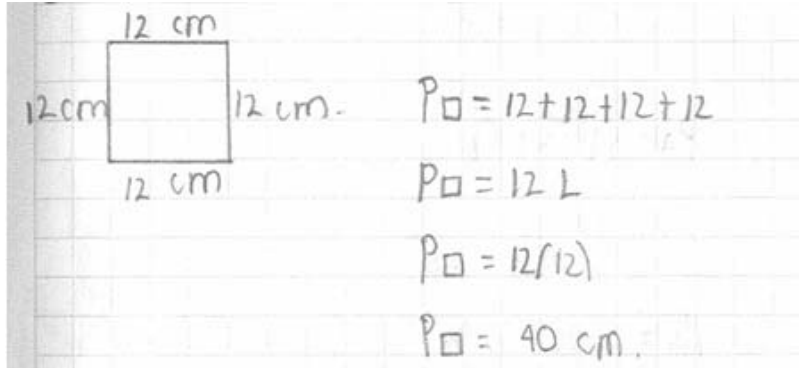 12 cm
12cm
12 cm.
12 cm
P□ = 12+12+12+12
P□ = 12 L
P□ = 12(12)
P□ = 40 cm.